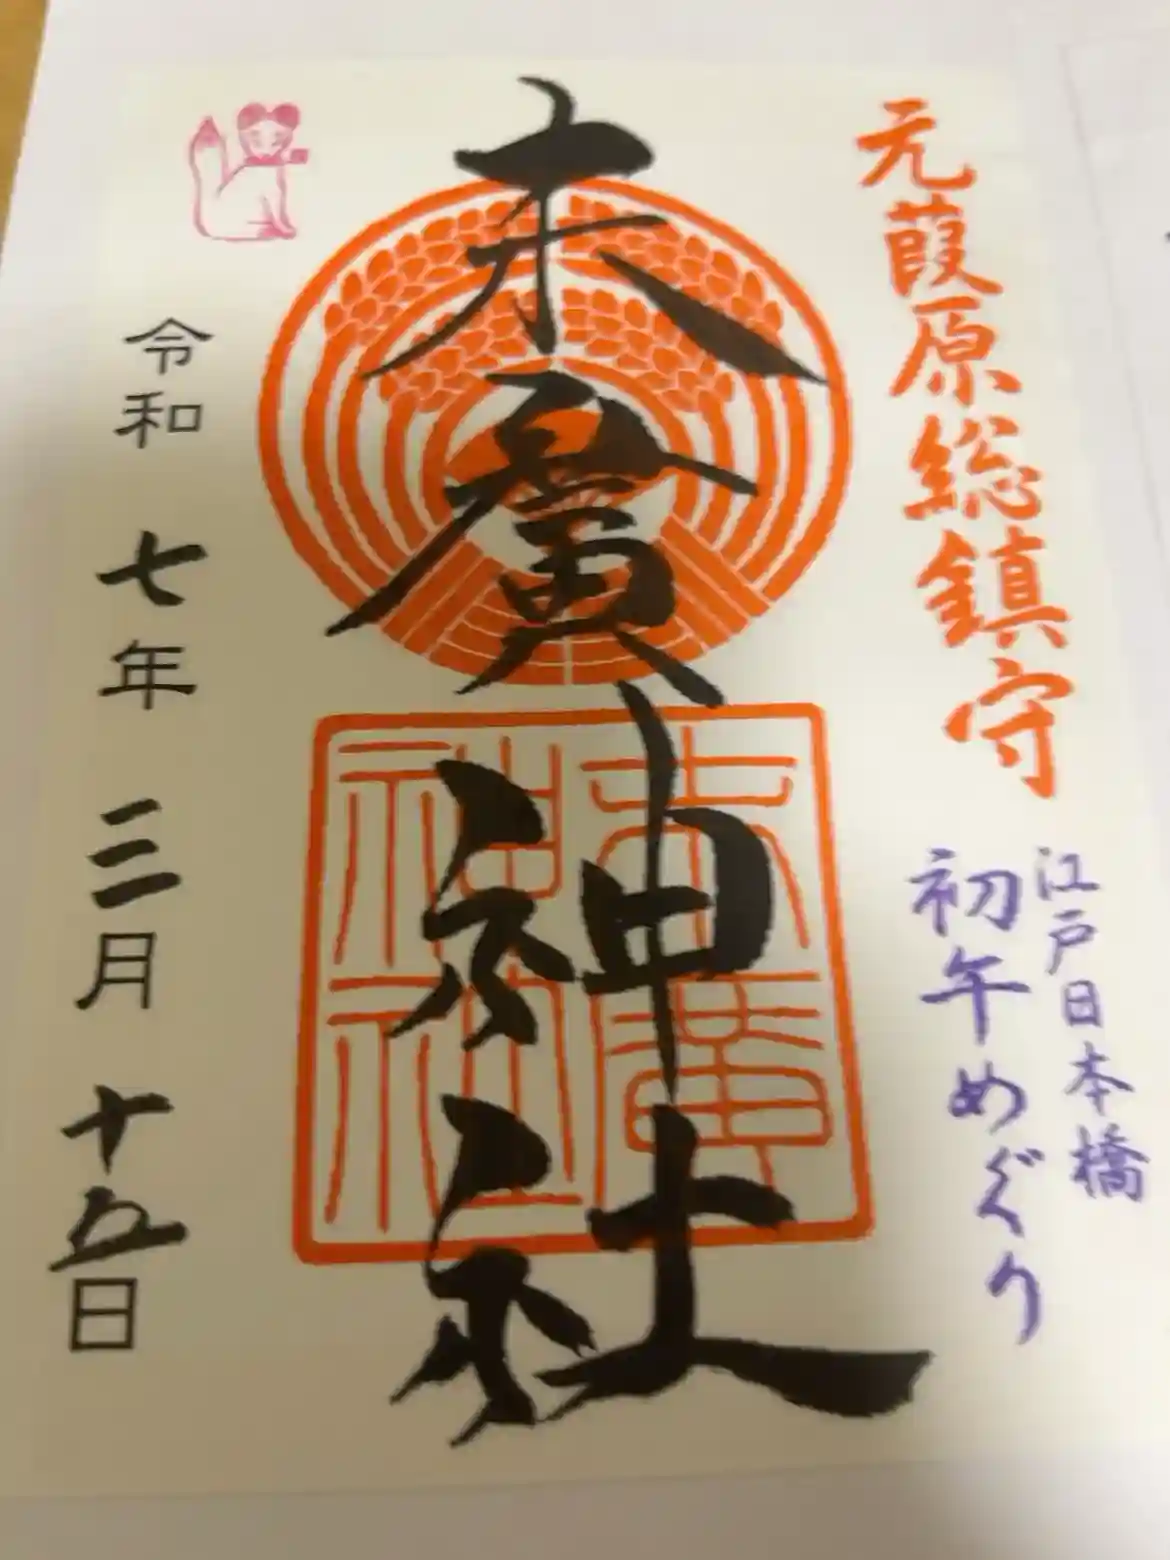 元葭原総鎮守
江戸日本橋
初午めぐり
末廣神社
末廣
神社
令和 七年 三月 十五日